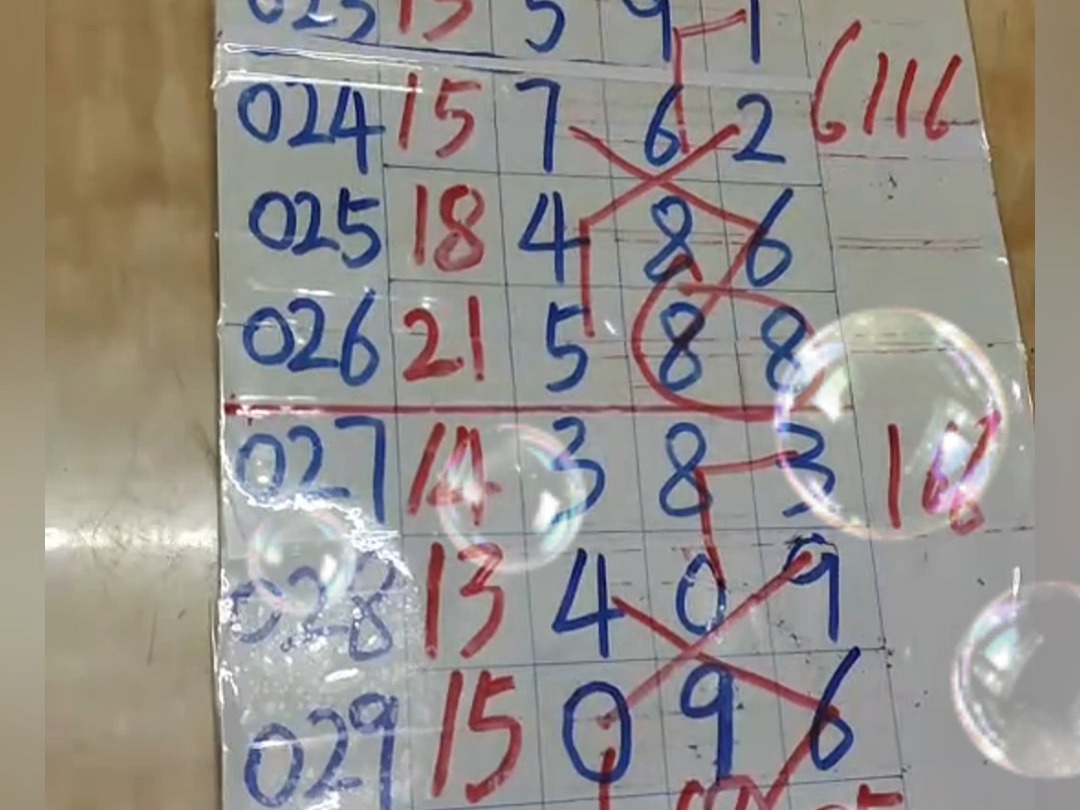 023 13 5 9 1
024 15 7 6 2 6116
025 18 4 8 6
026 21 5 8 8
027 14 3 8 3
028 13 4 0 9
029 15 0 9 6